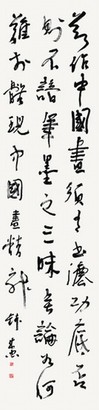 若作中國畫須有書法功底否
則不諳筆墨之三昧無論如何
難於體現中國畫精神